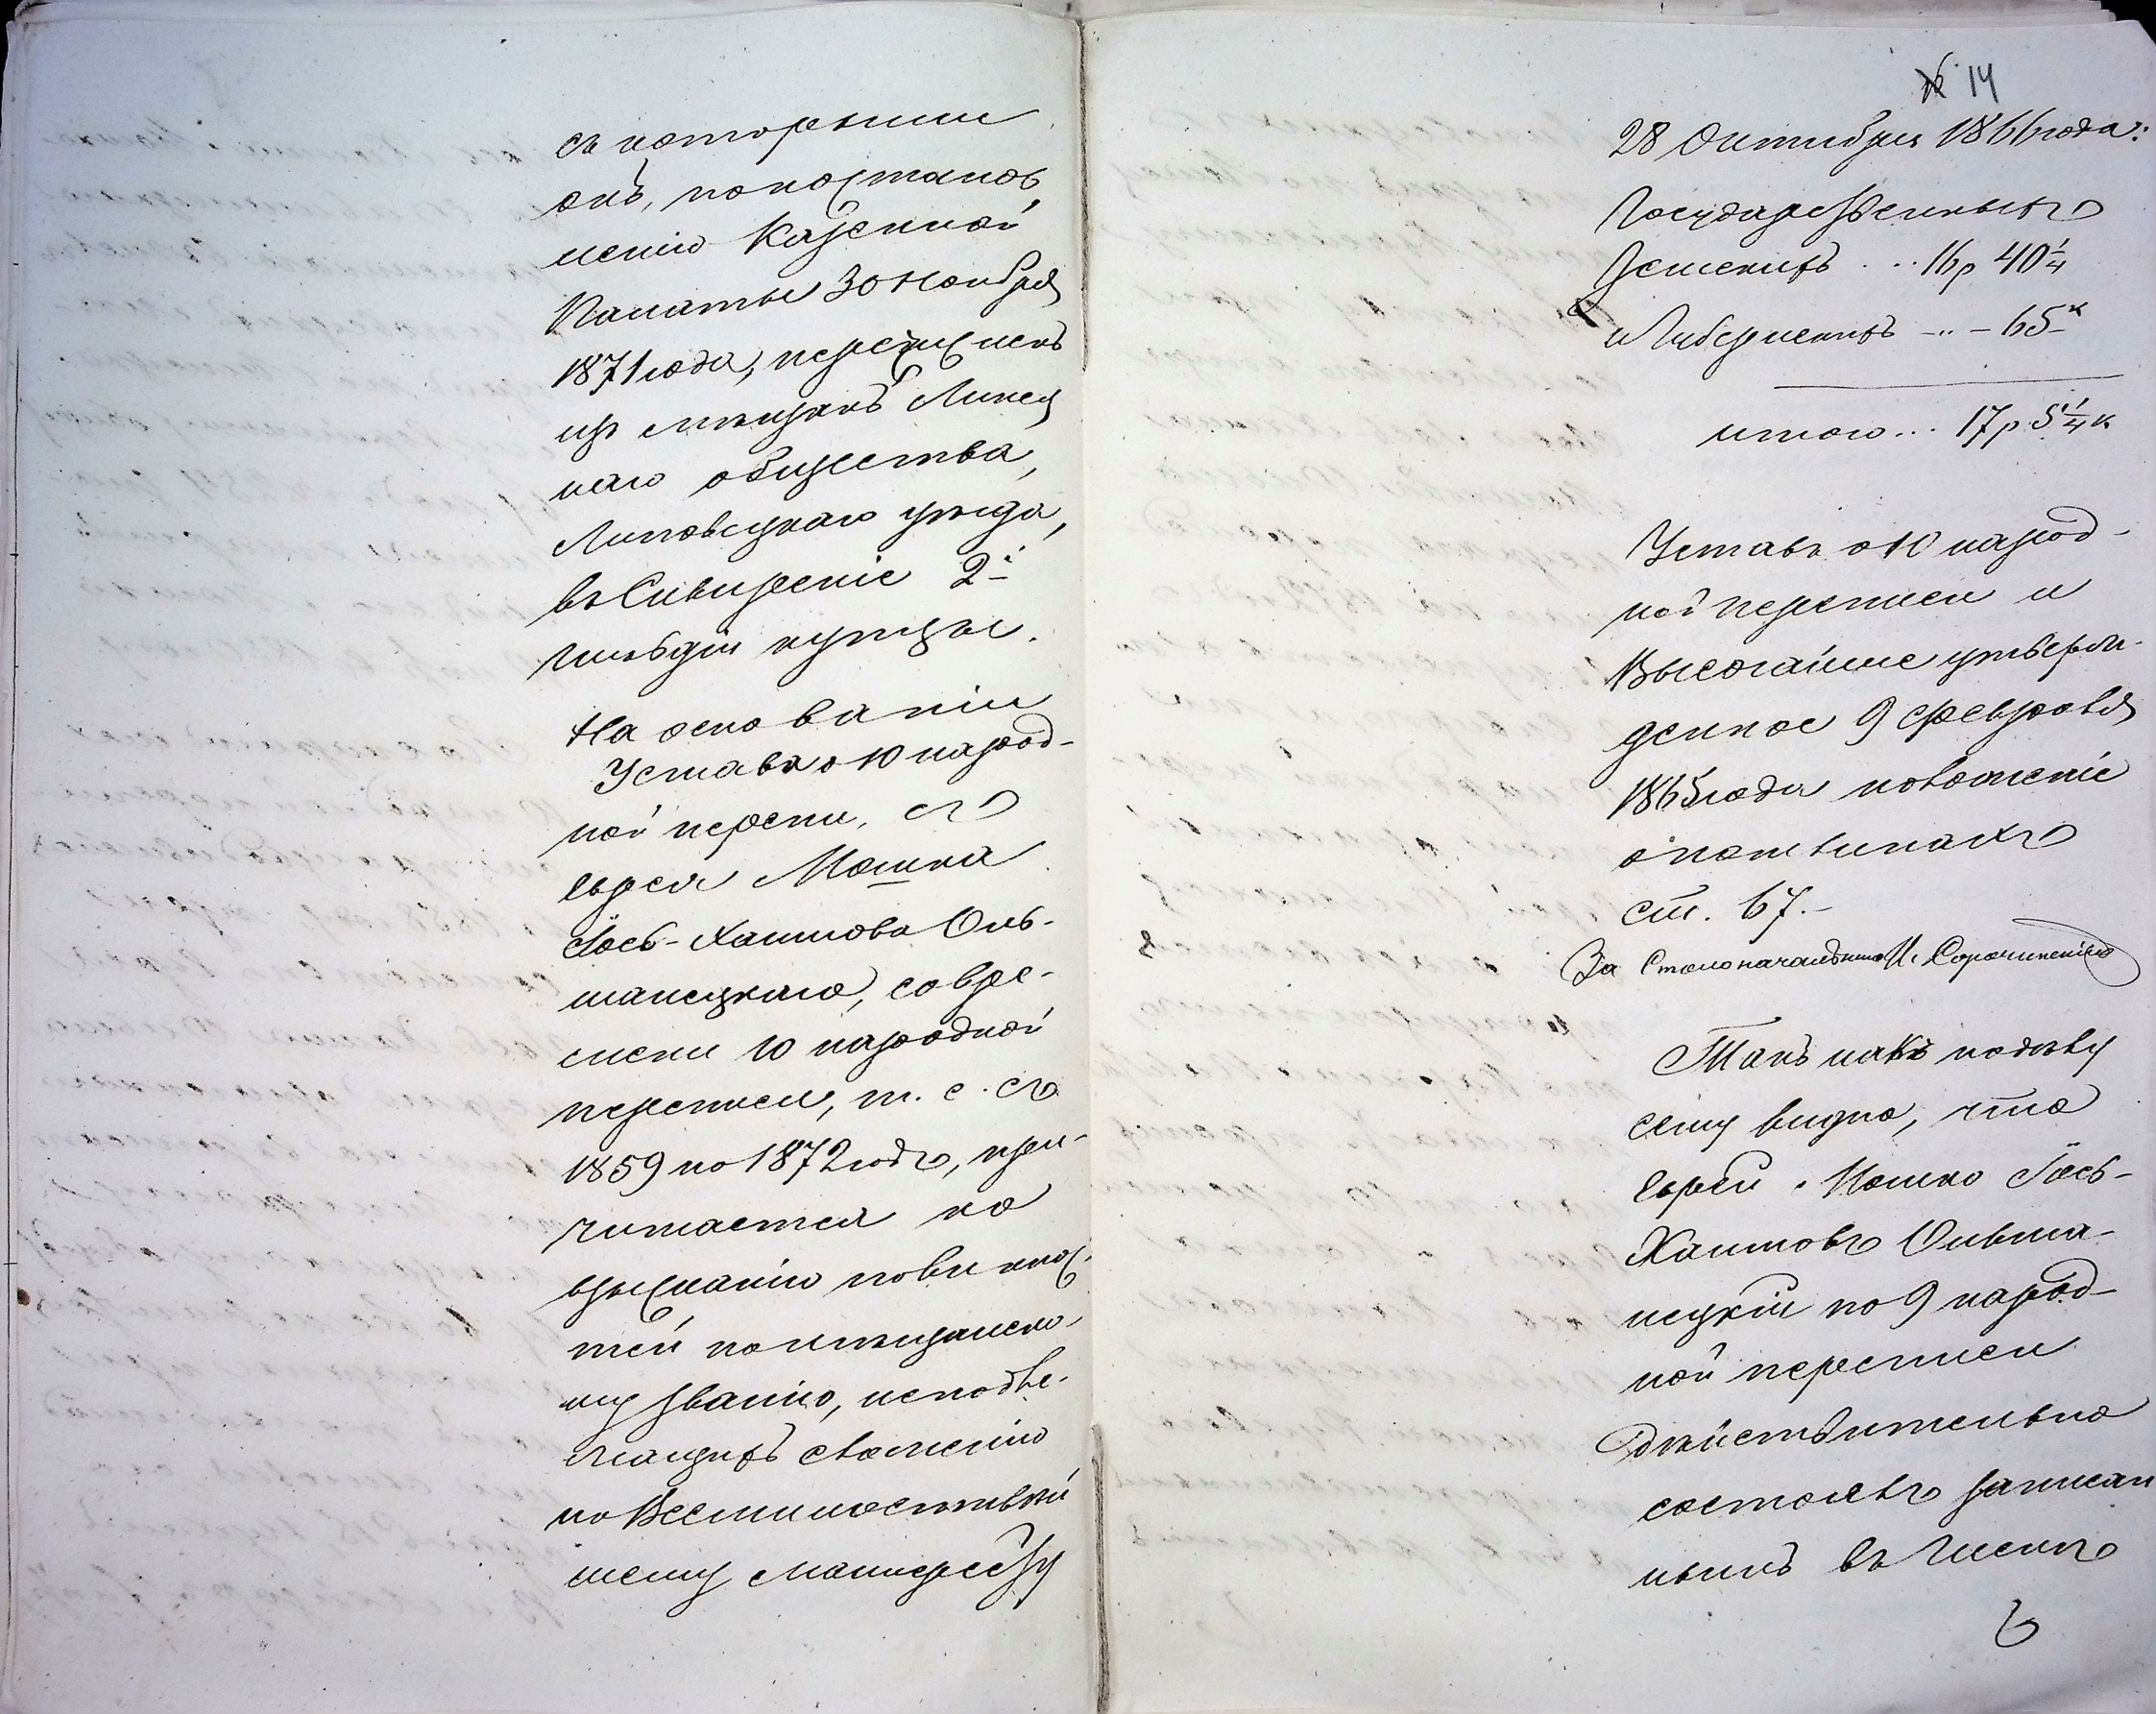 съ которыми
онъ, по постанов
ленію Казенной
Палаты 30 Ноября
1871 года, перечисленъ
изъ мѣщанъ Линец
каго общества,
Липовецкаго уѣзда,
въ Сквирскіе 2й
гильдіи купцы.
На основаніи
Устава о 10 народ-
ной перепи, съ
еврея Мошка
Іось-Хаимова Оль-
шанецкаго, со вре-
мени 10 народной
переписи, т. е. съ
1859 по 1872 годъ, при-
читается ко
взысканію повиннос-
тей по мѣщанско-
му званію, неподле-
жащихъ сложенію
по Всемилостивѣй
шему Манифесту
14
28 Октября 1866 года:
Государственныхъ
Земскихъ . . 16 р 40 1/4
и Губернскихъ - „ - 65 к
итого... 17 р 5 1/4 к
Уставъ о 10 народ-
ной переписи и
Высочайше утверж-
денное 9 Февраля
1865 года положеніе
о пошлинахъ
ст. 67.-
За Столоначальника И. Сорочинскій
Такъ какъ по дѣлу
сему видно, что
еврей Мошко Іось-
Хаимовъ Ольша-
нецкій по 9 народ-
ной переписи
дѣйствительно
состоялъ записан
нымъ въ числѣ